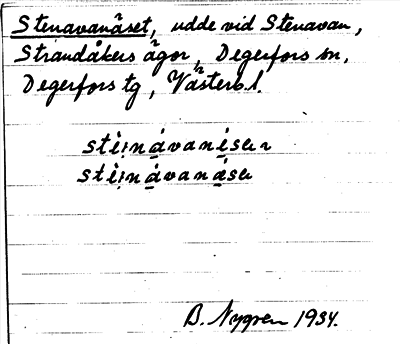 Stenavanäset, udde vid Stenavan,
Strandåkers ägor, Degerfors sn,
Degerfors tg, Västerb. l.
B. Nygren 1934.